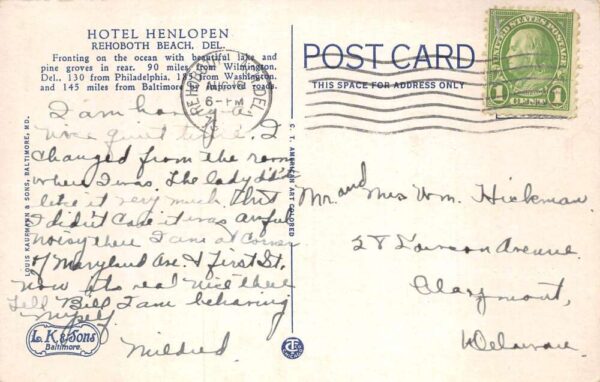 HOTEL HENLOPEN
REHOBOTH BEACH, DEL.
Fronting on the ocean with beautiful lake and
pine groves in rear. 90 miles from Wilmington,
Del., 130 from Philadelphia, 185 from Washington,
and 145 miles from Baltimore by improved roads.
I am having a
nice quiet time. I
changed from the room
where I was. The lady didn't
like it very much but
I didn't care it was awful
noisy there I am at Corner
of Maryland Ave. & First St.
now its real nice there
Tell Bill I am behaving
myself
Mildred
L. K. & Sons
Baltimore.
LOUIS KAUFMANN & SONS, BALTIMORE, MD.
C. T. AMERICAN ART COLORED
POST CARD
THIS SPACE FOR ADDRESS ONLY
REHOBOTH DEL.
AUG
6-PM
UNITED STATES POSTAGE
1 CENT 1
Mr. and Mrs Wm. Hickman
Avenue
Claymont,
Delaware